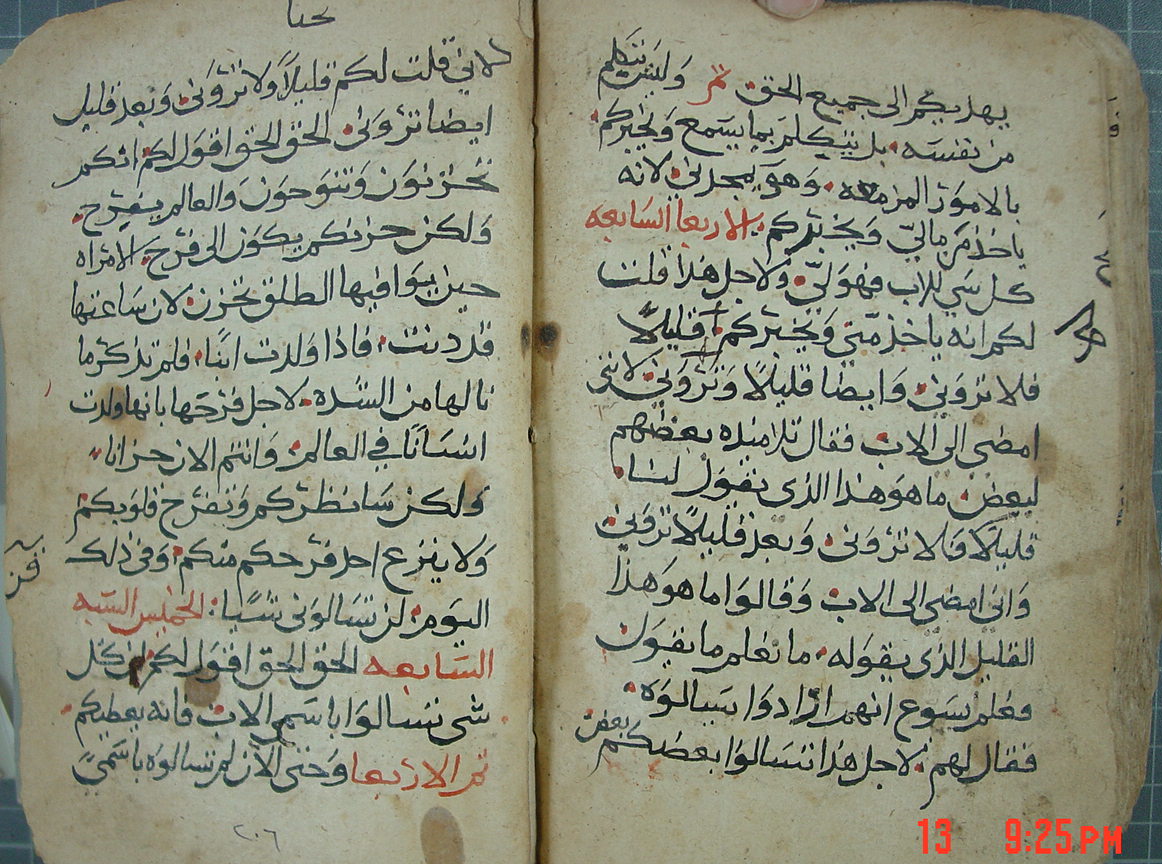 يهديكم الى جميع الحق تمر وليس يتكلم
من نفسه بل يتكلم بما يسمع ويخبركم
بالامور المزمعه وهو يمجدني لانه
ياخذ من مالي ويخبركم الاربعا السابعه
كل شي للاب فهو لي ولاجل هذا قلت
لكم انه ياخذ مني ويخبركم قليلا
فلا تروني وايضا قليلا وتروني لانني
امضي الى الاب فقال تلاميذه بعضهم
لبعض ما هو هذا الذي يقول لنا
قليلا فلا تروني وبعد قليلا تروني
واني امضي الى الاب وقالوا ما هو هذا
القليل الذي يقوله ما نعلم ما يقول
فعلم يسوع انهم ارادوا يسالوه
فقال لهم لاجل هذا تتسالوا بعضكم بعض
لاني قلت لكم قليلا ولا تروني وبعد قليل
ايضا تروني الحق الحق اقول لكم انكم
تحزنون وتنوحون والعالم يفرح
ولكن حزنكم يكون الى فرح الامراه
حين يوافيها الطلق تحزن لان ساعتها
قد دنت فاذا ولدت ابنا فلم تذكر ما
نالها من الشده لاجل فرحها بانها ولدت
انسانا في العالم وانتم الان حزانا
ولكن سانظركم وتفرح قلوبكم
ولا ينزع احد فرحكم منكم وفي ذلك
اليوم لن تسالوني شيا الخميس السته
السابعه الحق الحق اقول لكم ان كل
شي تسالوا باسمي الاب فانه يعطيكم
تمر الاربعا وحتى الان لم تسالوه باسمي
٢٠٦
13 9:25 PM